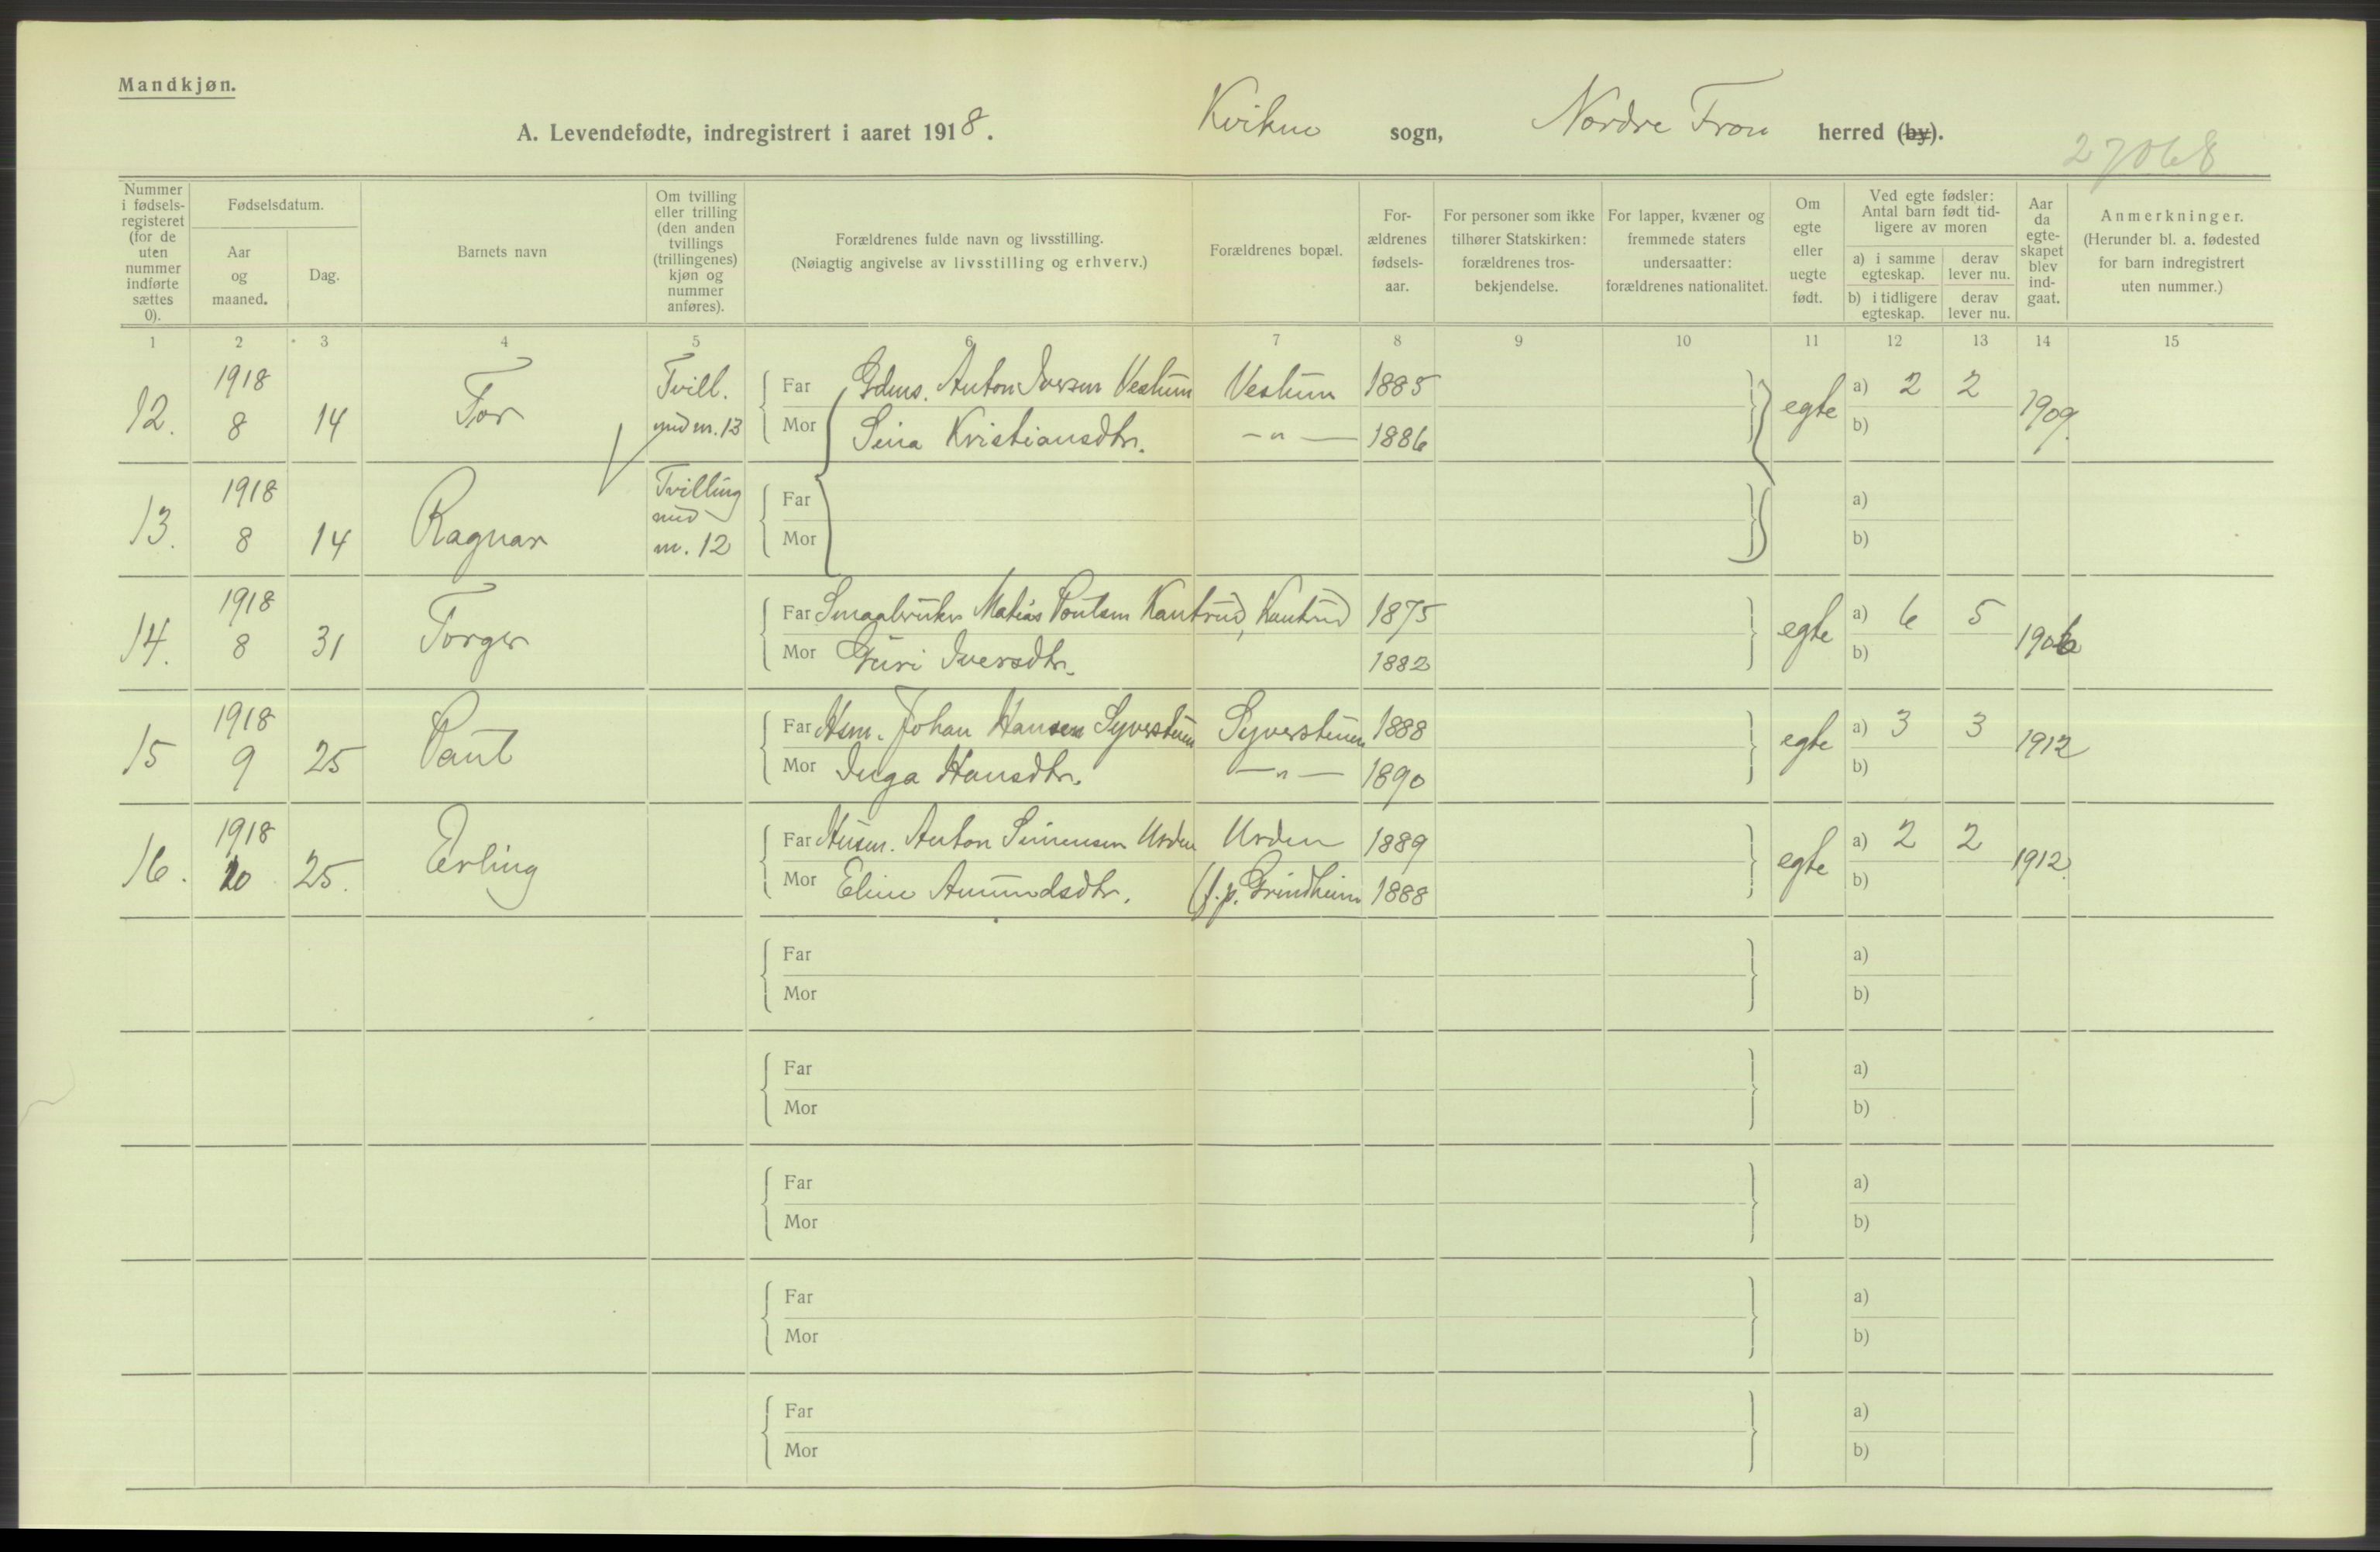 Mandkjøn.
A. Levendefødte, indregistrert i aaret 1918. Kvikne sogn, Nordre Fron herred (by).
27068
Nummer i fødsels-registeret (for de uten nummer indførte sættes 0).
Fødselsdatum.
Aar og maaned.
Dag.
Barnets navn
Om tvilling eller trilling (den anden tvillings (trillingenes) kjøn og nummer anføres).
Forældrenes fulde navn og livsstilling.
(Nøiagtig angivelse av livsstilling og erhverv.)
Forældrenes bopæl.
For-ældrenes fødsels-aar.
For personer som ikke tilhører Statskirken: forældrenes tros-bekjendelse.
For lapper, kvæner og fremmede staters undersaatter: forældrenes nationalitet.
Om egte eller uegte født.
Ved egte fødsler: Antal barn født tid-ligere av moren
a) i samme egteskap.
derav lever nu.
b) i tidligere egteskap.
derav lever nu.
Aar da egte-skapet blev ind-gaat.
Anmerkninger.
(Herunder bl. a. fødested for barn indregistrert uten nummer.)
1 2 3 4 5 6 7 8 9 10 11 12 13 14 15
12. 1918 8 14 Tor Tvill. med nr. 13
Far Gdms. Anton Iversen Vestum Vestum 1885 egte a) 2 2 1909.
Mor Sina Kristiansdtr. -"- 1886 b)
13. 1918 8 14 Ragnar Tvilling med nr. 12
Far a)
Mor b)
14. 1918 8 31 Torger
Far Smaabruker Matias Poulsen Kantrud, Kantrud 1875 egte a) 6 5 1906
Mor Guri Iversdtr. 1882 b)
15 1918 9 25 Paul
Far Hsm. Johan Hansen Syverstuen Syverstuen 1888 egte a) 3 3 1912
Mor Inga Hansdtr. -"- 1890 b)
16. 1918 10 25. Erling
Far Husm. Anton Simensen Urden Urden 1889 egte a) 2 2 1912.
Mor Eline Amundsdtr. (f.p. Grindheim 1888 b)
Far a)
Mor b)
Far a)
Mor b)
Far a)
Mor b)
Far a)
Mor b)
Far a)
Mor b)